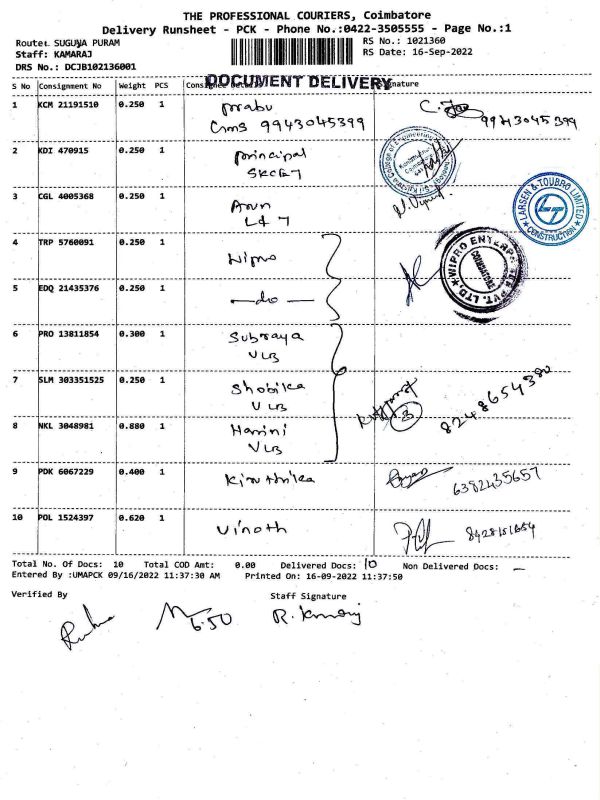 THE PROFESSIONAL COURIERS, Coimbatore
Delivery Runsheet - PCK - Phone No.:0422-3505555 - Page No.:1
Route: SUGUNA PURAM
RS No.: 1021360
Staff: KAMARAJ
RS Date: 16-Sep-2022
DRS No.: DCJB102136001
DOCUMENT DELIVERY
S No Consignment No Weight PCS Consignee Details Signature
1 KCM 21191510 0.250 1 Prabu
Cms 9943045399 9943045399
2 KDI 470915 0.250 1 Principal
SKCET
3 CGL 4005368 0.250 1 Arun
L&T
LARSEN & TOUBRO LIMITED
LT
CONSTRUCTION
4 TRP 5760091 0.250 1 Wipro
WIPRO ENTERPRISES PVT. LTD.
COIMBATORE
5 EDQ 21435376 0.250 1 —do—
6 PRO 13811854 0.300 1 Subraya
VLB
7 SLM 303351525 0.250 1 Shobika
VLB
3 8248654380
8 NKL 3048981 0.880 1 Harini
VLB
9 PDK 6067229 0.400 1 Kiruthika 6382435657
10 POL 1524397 0.620 1 Vinoth
Total No. Of Docs: 10 Total COD Amt: 0.00 Delivered Docs: 10 Non Delivered Docs: —
Entered By :UMAPCK 09/16/2022 11:37:30 AM Printed On: 16-09-2022 11:37:50
Verified By Staff Signature
6.50 R. Kamaraj